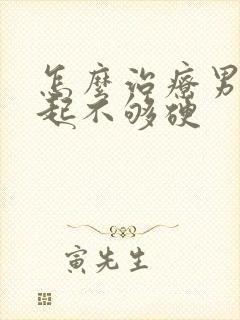 怎麼治療男
起不够硬
寅先生